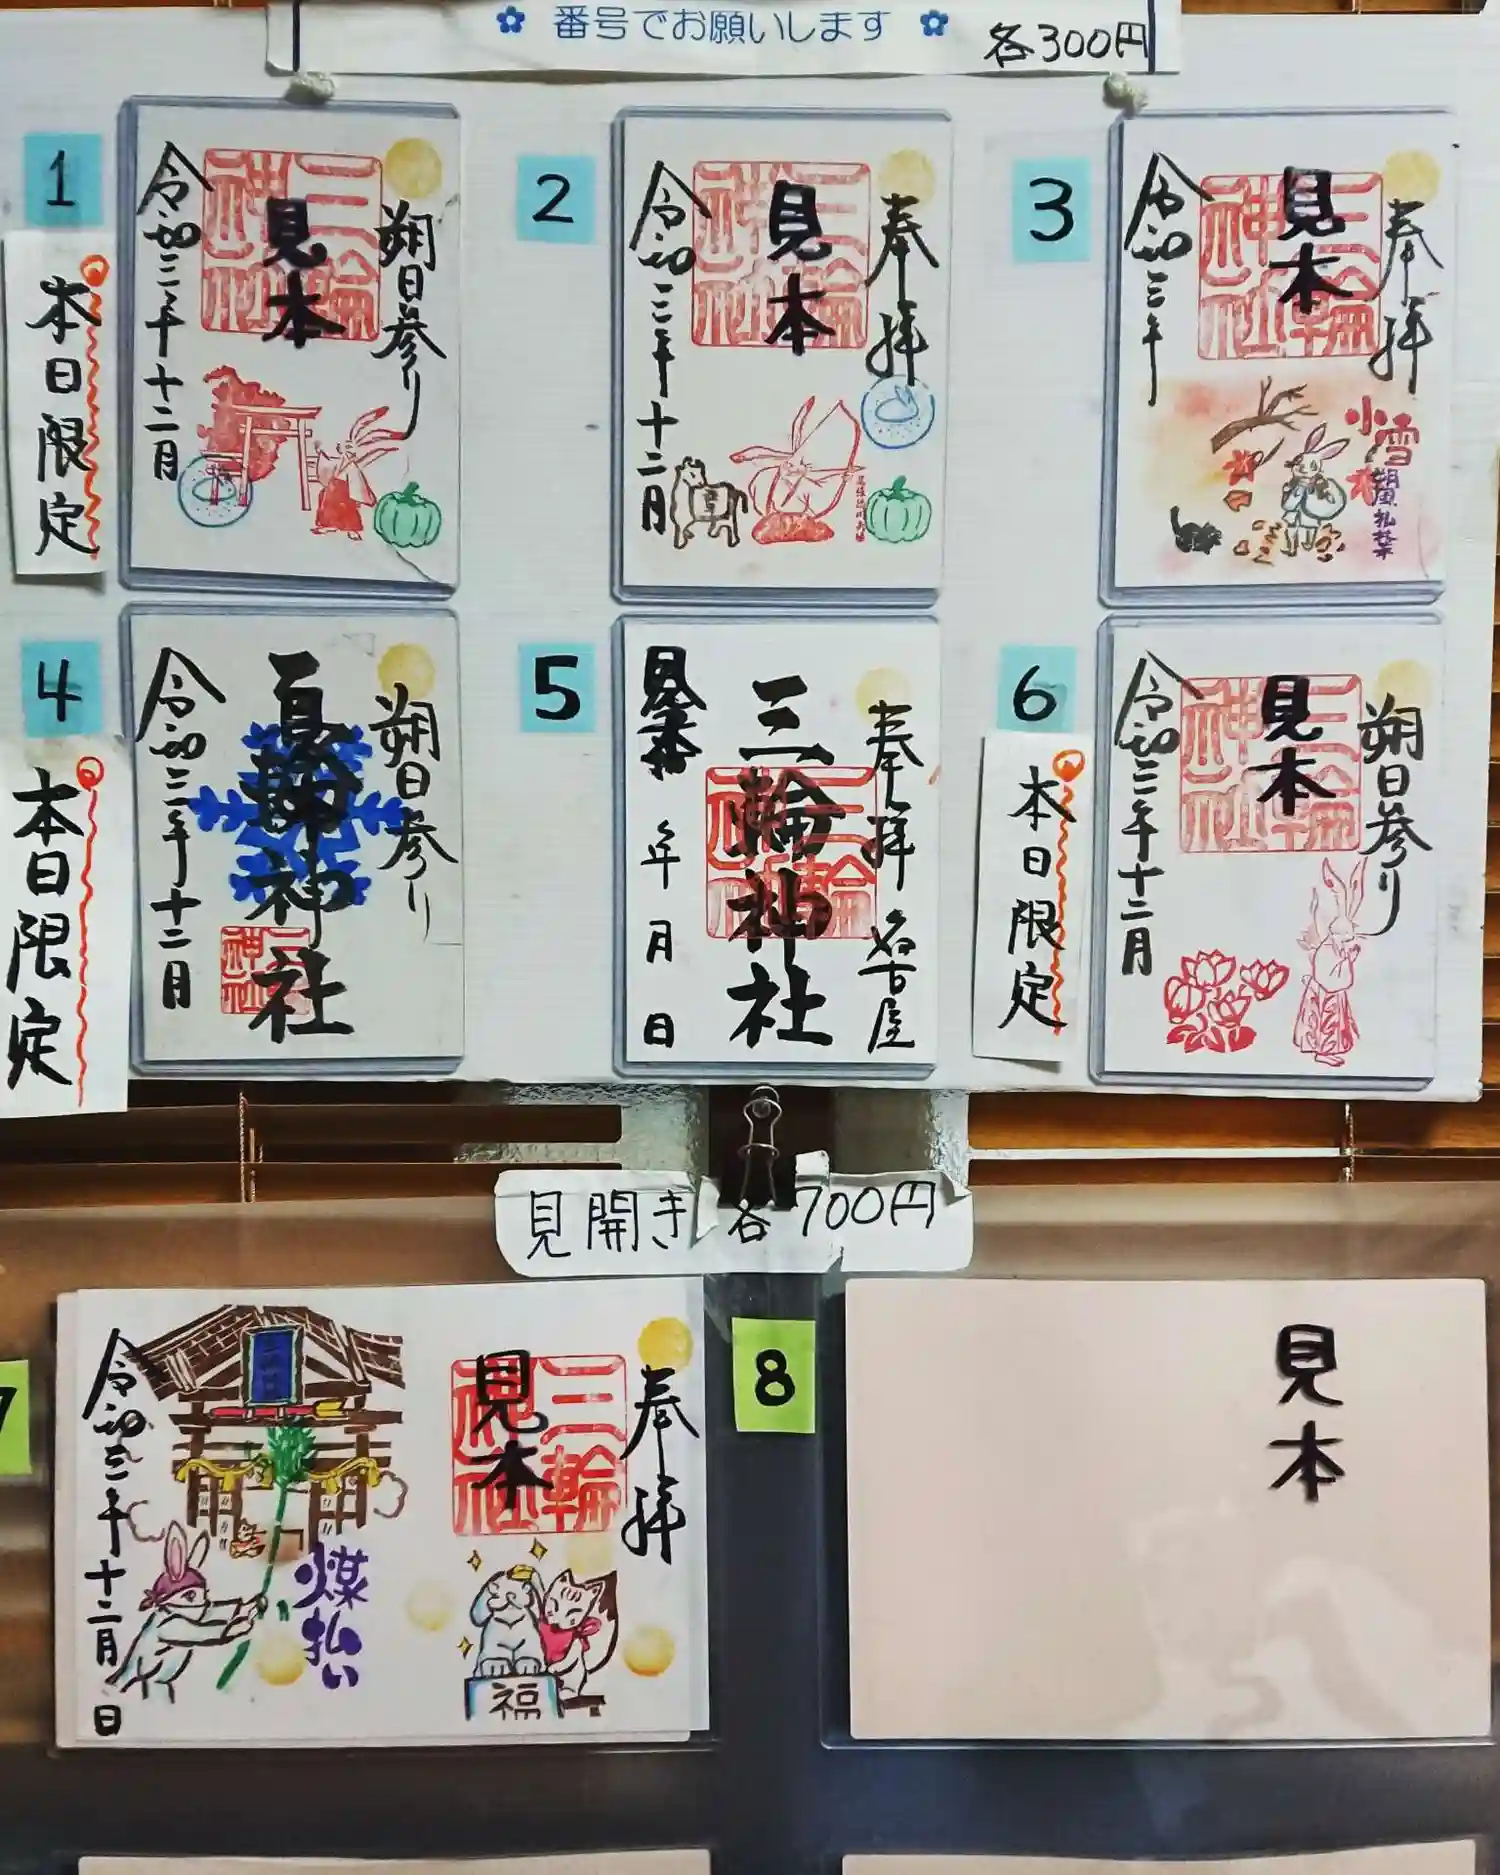 番号でお願いします
各300円
1
本日限定
朔日参り
見本
三輪神社
令和三年十二月
2
奉拝
見本
三輪神社
令和三年十二月
3
奉拝
見本
三輪神社
令和三年
小雪
4
本日限定
朔日参り
見本
神社
令和三年十二月
5
奉拝 名古屋
三輪神社
三輪神社
見本
年 月 日
6
本日限定
朔日参り
見本
三輪神社
令和三年十二月
見開き 各700円
7
奉拝
見本
三輪神社
福
煤払い
令和三年十二月 日
8
見本